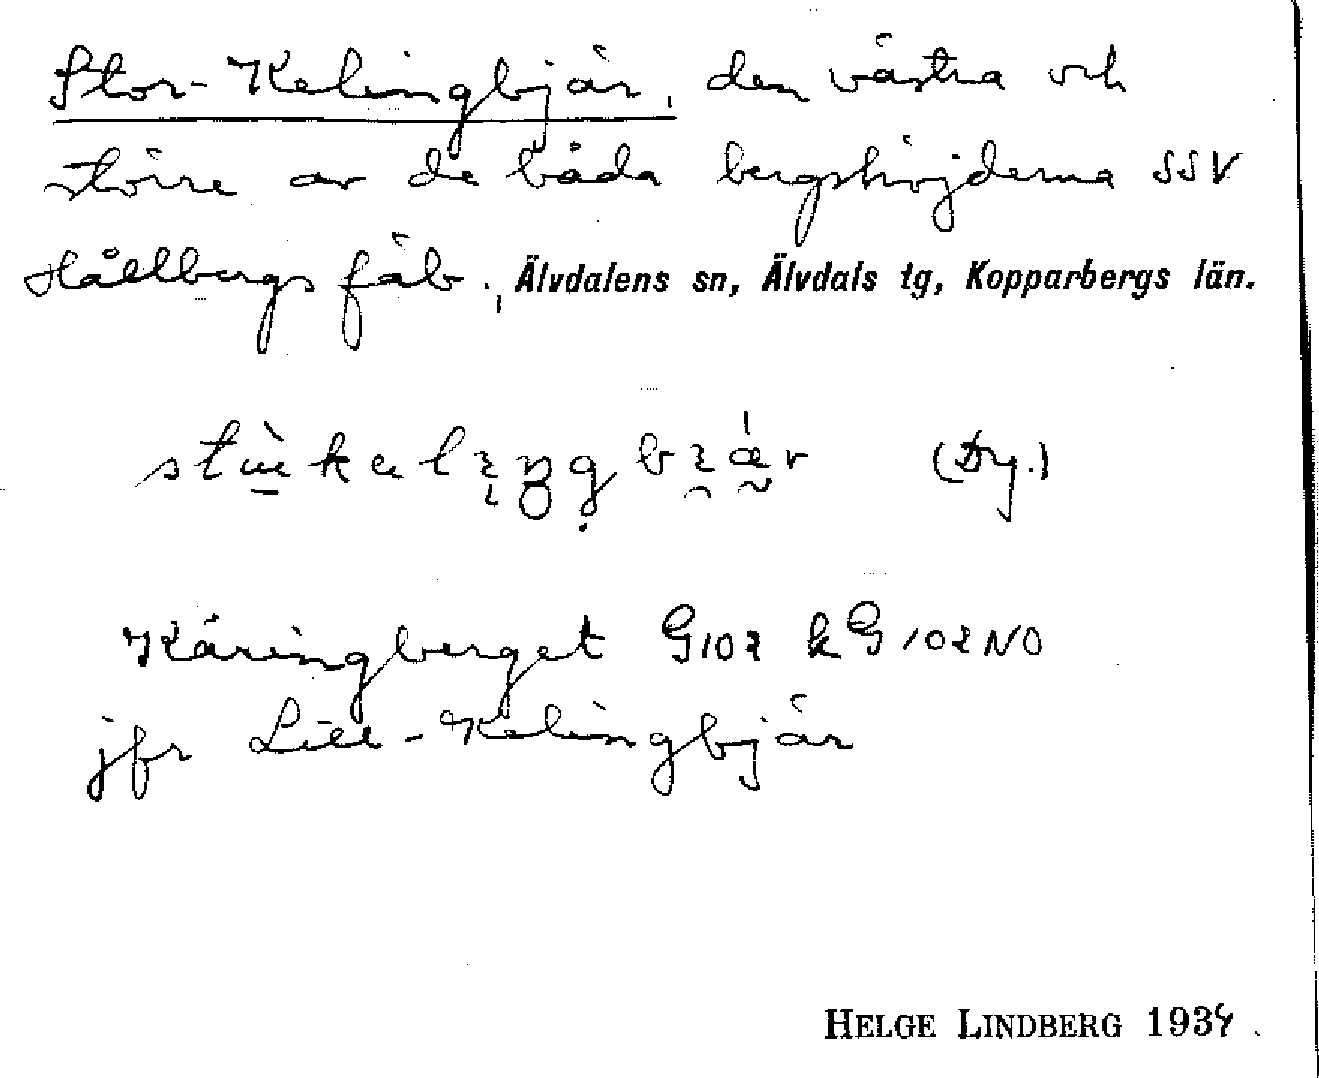 Stor-Kelingbjär, den västra och
större av de båda bergshöjderna SSV
Hållbergs fäb., Älvdalens sn, Älvdals tg, Kopparbergs län.
(Dy.)
Käringberget G102 kG102NO
jfr Lill-Kelingbjär
HELGE LINDBERG 1934.